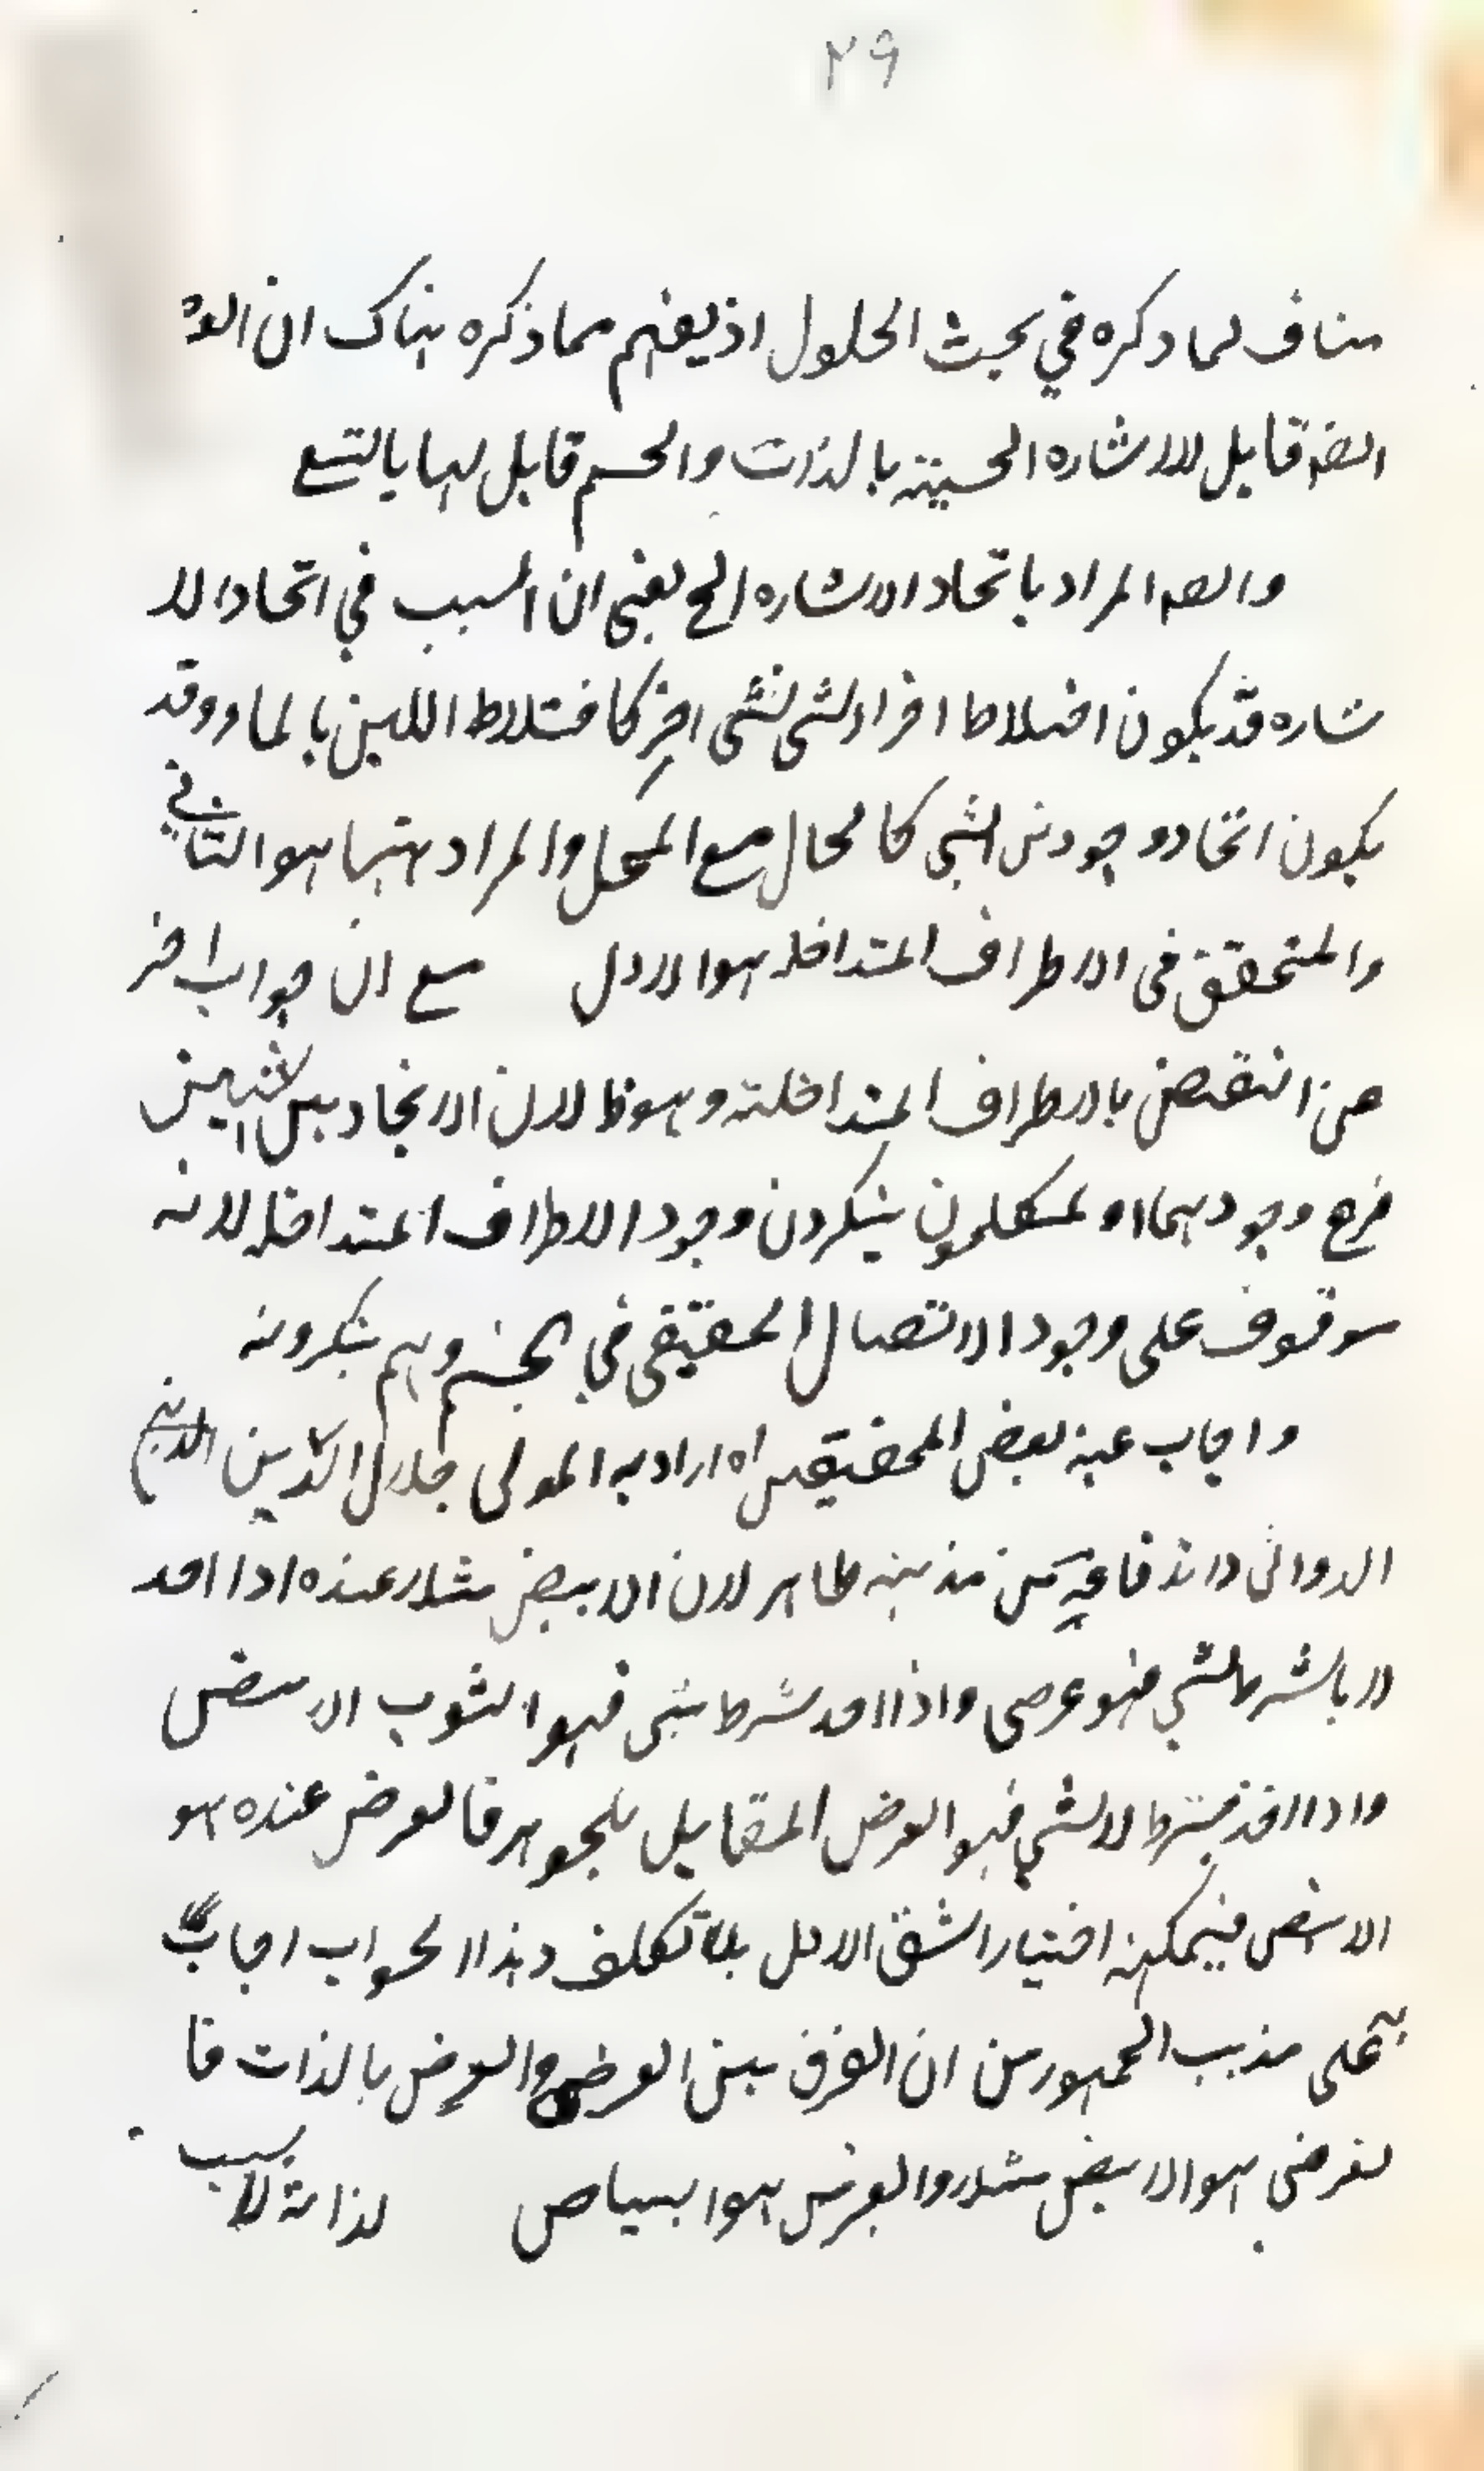 ٢٩
مناف لما ذكره في بحث الحلول اذ يفهم مما ذكره هناك ان
ايضه قابل للاشاره الحسية بالذات والجسم قابل لها بالتبع
وايضه المراد باتحاد الاشاره الخ يعني ان السبب في اتحاد الا
شاره قد يكون اختلاط افراد لشي لشي اخر كاختلاط اللبن بالماء وقد
يكون اتحاد وجود من الشي كالحال مع المحل والمراد ههنا هو الثاني
والمتحقق في الاطراف المتداخله هو الاول مع ان جواب اخر
من النقض بالاطراف المتداخلة وهو ظ لان الاتحاد بين الشيئين
فرع وجودهما و المتكلمون ينكرون وجود الاطراف المتداخله لانه
موقوف على وجود الاتصال الحقيقي في الجسم وهم ينكرونه
واجاب عنه بعض المحققين اه اراد به المولى جلال الدين
الدواني واندفاعه من مذهبه ظاهر لان الابيض مثلا عنده اذا اخذ
لا بالشرط لشي فهو عرضي واذا اخذ بشرط شي فهو الثوب الابيض
واذا اخذ بشرط لا لشي فهو العرض المقابل للجوهر فالعرض عنده هو
الابيض فيمكنه اختيار الشق الاول بلا تكلف وهذا الجواب اجاب
به على مذهب الجمهور من ان الفرق بين العرضي والعرض بالذات فا
لعرضي هو الابيض مثلا والعرض هو البياض لذاته لا بسبب